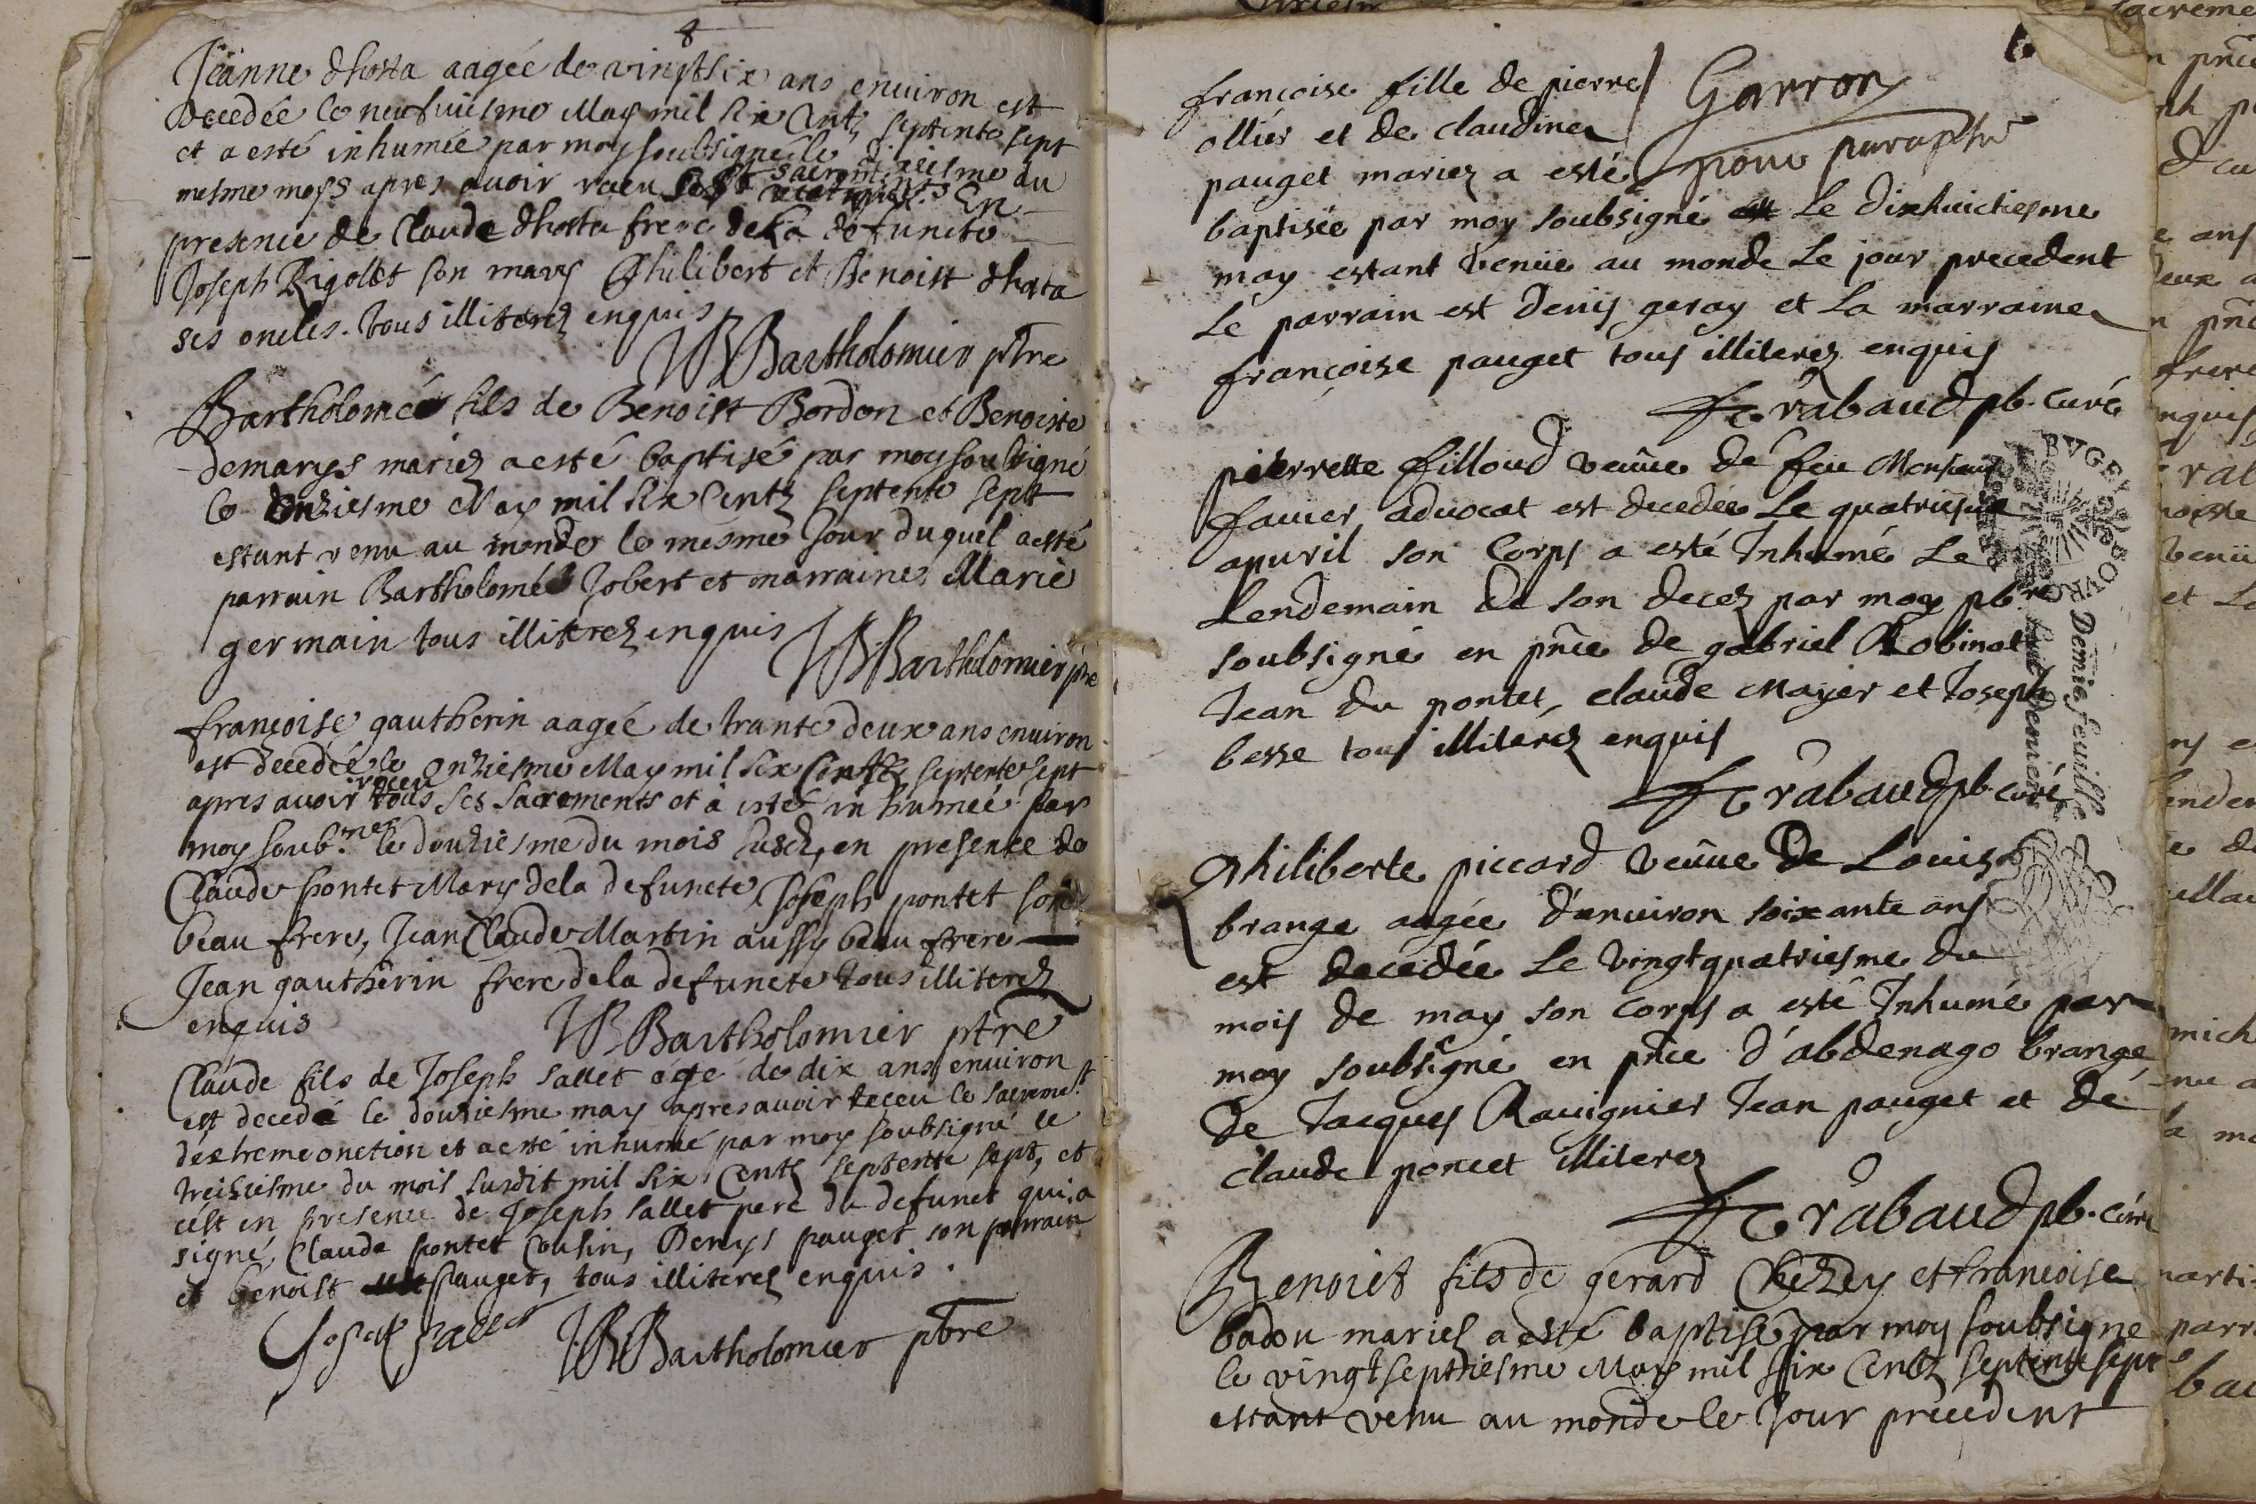 8
Jeanne dhosta aagée de vingtsix ans environ est
decedée le neufuiesme May mil six Centz septente sept
et a esté inhumée par moy soubsigné le dixiesme du
mesme moys apres avoir receu sacrements En
presence de Claude dhosta frere de la defuncte
Joseph Rigollet son mary Philibert et Benoist dhosta
ses oncles. tous illiterez enquis
Bartholomier ptre
Bartholomé fils de Benoist Bordon et Benoiste
demarys mariez a esté baptisé par moy soubsigné
le onziesme May mil six Centz septente sept
estant venu au monde le mesme Jour duquel a esté
parrain Bartholomé Jobert et marraine Marie
germain tous illiterez enquis
Bartholomier ptre
françoise gautherin aagée de trante deux ans environ
est decedée le onziesme May mil six Centz septente sept
apres avoir receu tous ses sacrements et a esté inhumée par
moy soub.né le douziesme du mois susd, en presence de
Claude pontet Mary de la defuncte Joseph pontet son
beau frere, Jean Claude Martin aussy beau frere
Jean gautherin frere de la defuncte tous illiterez
enquis
Bartholomier ptre
Claude fils de Joseph sallet agé de dix ans environ
est decedé le douziesme may apres avoir receu le sacremt
dextreme onction et a esté inhumé par moy soubsigné le
treiziesme du mois susdit mil six Centz septente sept, et
cést en presence de Joseph sallet pere du defunct qui a
signé, Claude pontet Cousin, Denys pauget son parrain
et benoist pauget, tous illiterez enquis.
Josept sallet
Bartholomier pbre
françoise fille de pierre
ollier et de claudine
pauget mariez a esté
Garron
pour paraphe
baptisée par moy soubsigné Le dixhuictiesme
may estant venüe au monde Le jour precedent
Le parrain est Denis geray et La marraine
françoise pauget tous illiterez enquis
rabaud pb. curé
pierrette filloud veuue de feu Monsieur
fauier aduocat est decedée Le quatriesme
apuril son Corps a esté Inhumé Le
Lendemain de son decez par moy pbre
soubsigné en pnce de gabriel Robinat
Jean du pontet, claude Mayer et Joseph
besse tous illiterez enquis
rabaud pb. curé
BVGEY
Demie feuille
Philiberte piccard veuue de Louis
brange aagée d'enuiron soixante ans
est decedée Le vingtquatriesme du
mois de may son Corps a esté Inhumé par
moy soubsigné en pnce d'abdenago brange,
De Jacques Rauignier Jean pauget et de
claude poncet illiterez
rabaud pb. curé
Benoict fils de gerard Chezey et francoise
badou mariez a esté baptisé par moy soubsigne
le vingtseptiesme May mil six Centz septente sept
estant venu au monde le Jour precedent